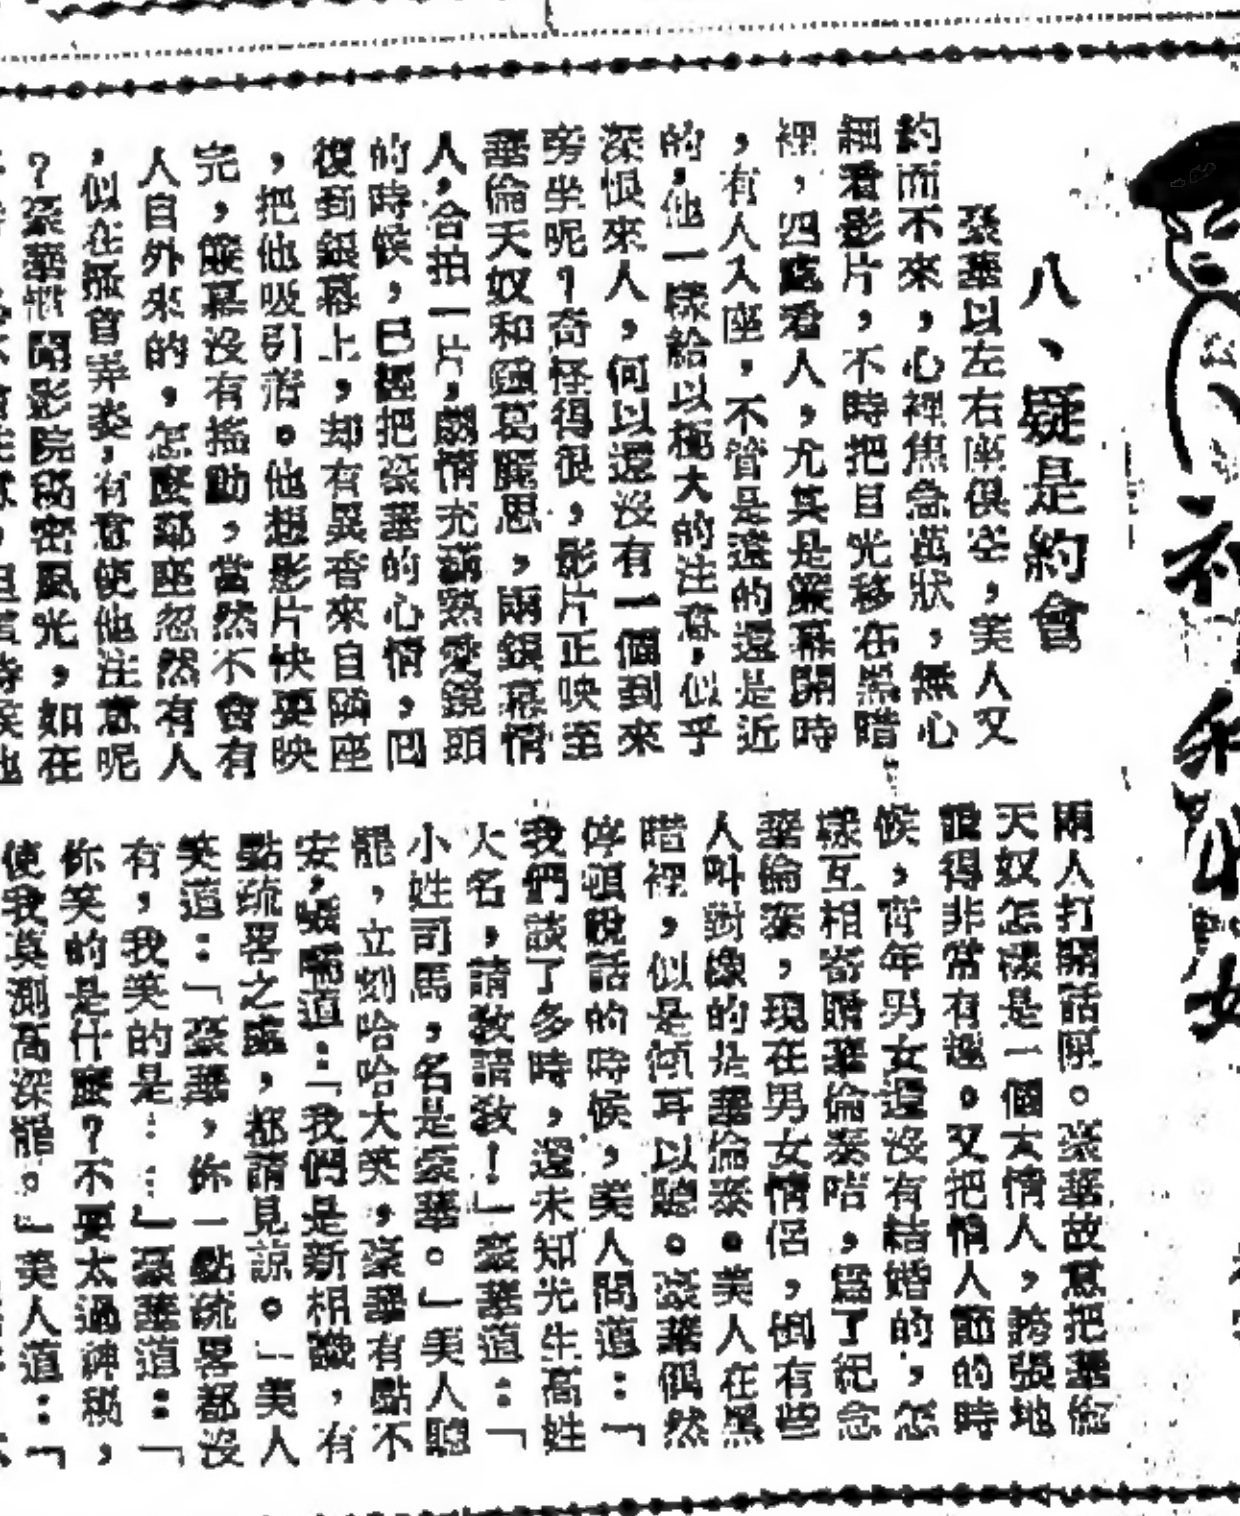 八、疑是約會
豪華以左右座俱空，美人又
約而不來，心裡焦急萬狀，無心
細看影片，不時把目光移在黑暗
裡，四處看人，尤其是簾幕開時
，有人入座，不管是遠的還是近
的，他一樣給以極大的注意，似乎
深恨來人，何以還沒有一個到來
旁坐呢？奇怪得很，影片正映至
華倫天奴和麗思，兩銀幕情
人，合拍一片，劇情充滿熱愛鏡頭
的時候，已經把豪華的心情，回
復到銀幕上，却有異香來自隣座
，把他吸引著。他想影片快要映
完，簾幕沒有搖動，當然不會有
人自外來的，怎麼鄰座忽然有人
，似在搔首弄姿，有意使他注意呢
？豪華慣聞影院秘密風光，如在
兩人打開話匣。豪華故意把華倫
天奴怎樣是一個大情人，誇張地
說得非常有趣。又把情人節的時
候，青年男女還沒有結婚的，怎
樣互相寄贈華倫泰咭，為了紀念
華倫泰，現在男女情侶，倒有些
人叫對像的是華倫泰。美人在黑
暗裡，似是傾耳以聽。豪華偶然
停頓說話的時候，美人問道：「
我們談了多時，還未知先生高姓
大名，請教請教！」豪華道：「
小姓司馬，名是豪華。」美人聽
罷，立刻哈哈大笑，豪華有點不
安，囁嚅道：「我們是新相識，有
點疏畧之處，都請見諒。」美人
笑道：「豪華，你一點疏畧都沒
有，我笑的是……」豪華道：「
你笑的是什麼？不要太過神秘，
使我莫測高深罷。」美人道：「